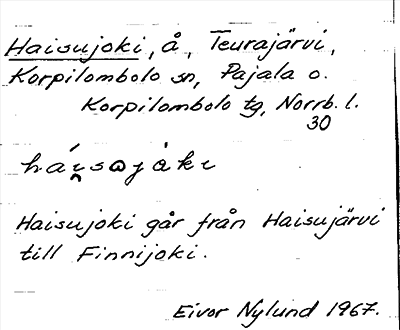 Haisujoki, å, Teurajärvi,
Korpilombolo sn, Pajala o.
Korpilombolo tg, Norrb. l.
30
Haisujoki går från Haisujärvi
till Finnijoki.
Eivor Nylund 1967.